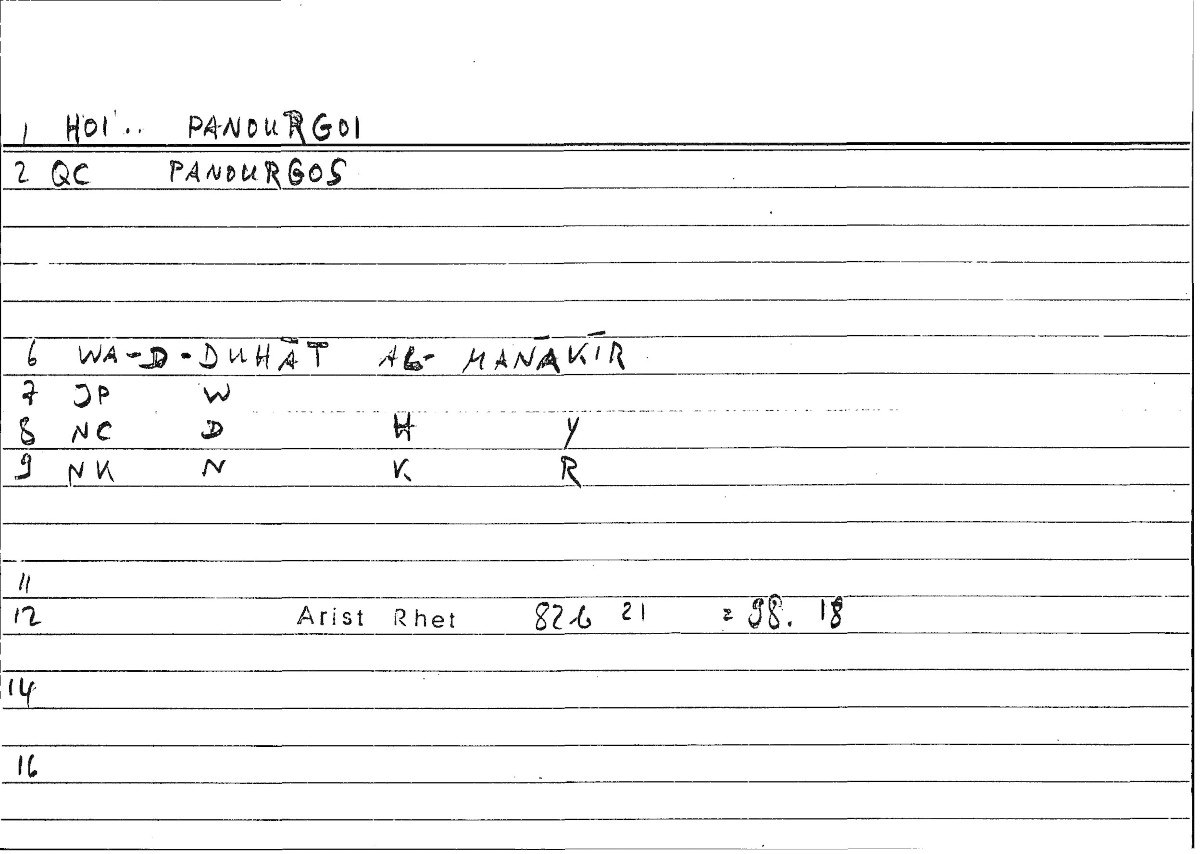 1 HOI.. PANOURGOI
2 QC PANOURGOS
6 WA-D-DUHĀT AL-MANĀKĪR
7 JP W
8 NC D H Y
9 NK N K R
11
12 Arist Rhet 82b 21 = 98. 18
14
16